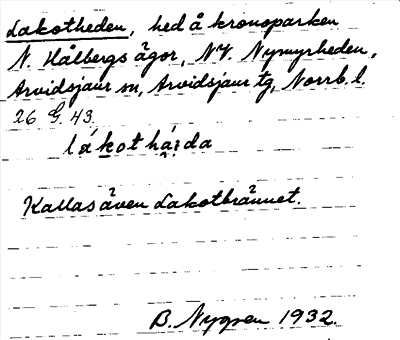 Lakotheden, hed å kronoparken
N. Hålbergs ägor, NV. Nymyrheden,
Arvidsjaur sn, Arvidsjaur tg, Norrb. l.
26 G. 43.
lákothá:da
Kallas även Lakotbrännet.
B. Nygren 1932.